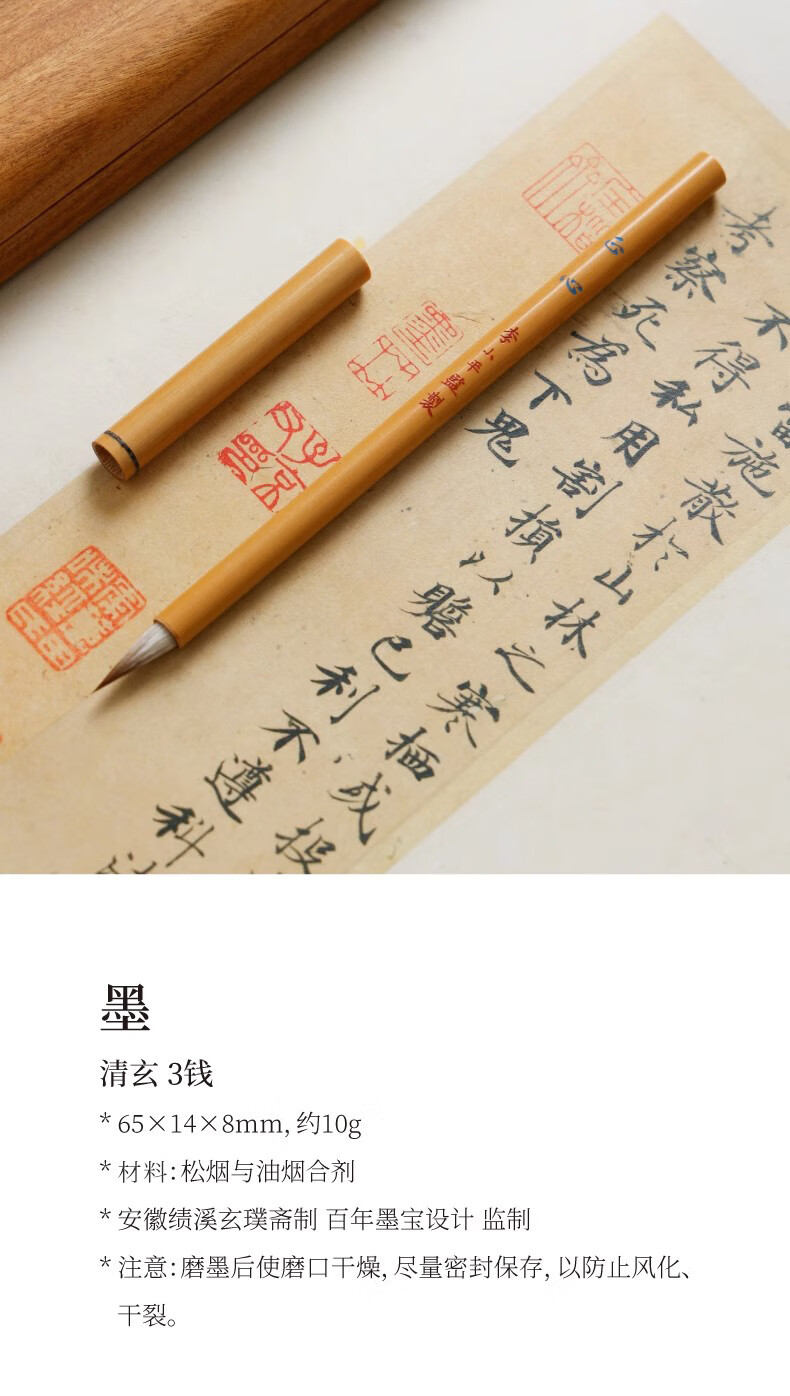 施散於山林之寒栖或投
不得私用割損以贍已利不遵科
考察死為下鬼
正心
李小平監製
墨
清玄 3钱
* 65×14×8mm, 约10g
* 材料:松烟与油烟合剂
* 安徽绩溪玄璞斋制 百年墨宝设计 监制
* 注意:磨墨后使磨口干燥, 尽量密封保存, 以防止风化、
干裂。